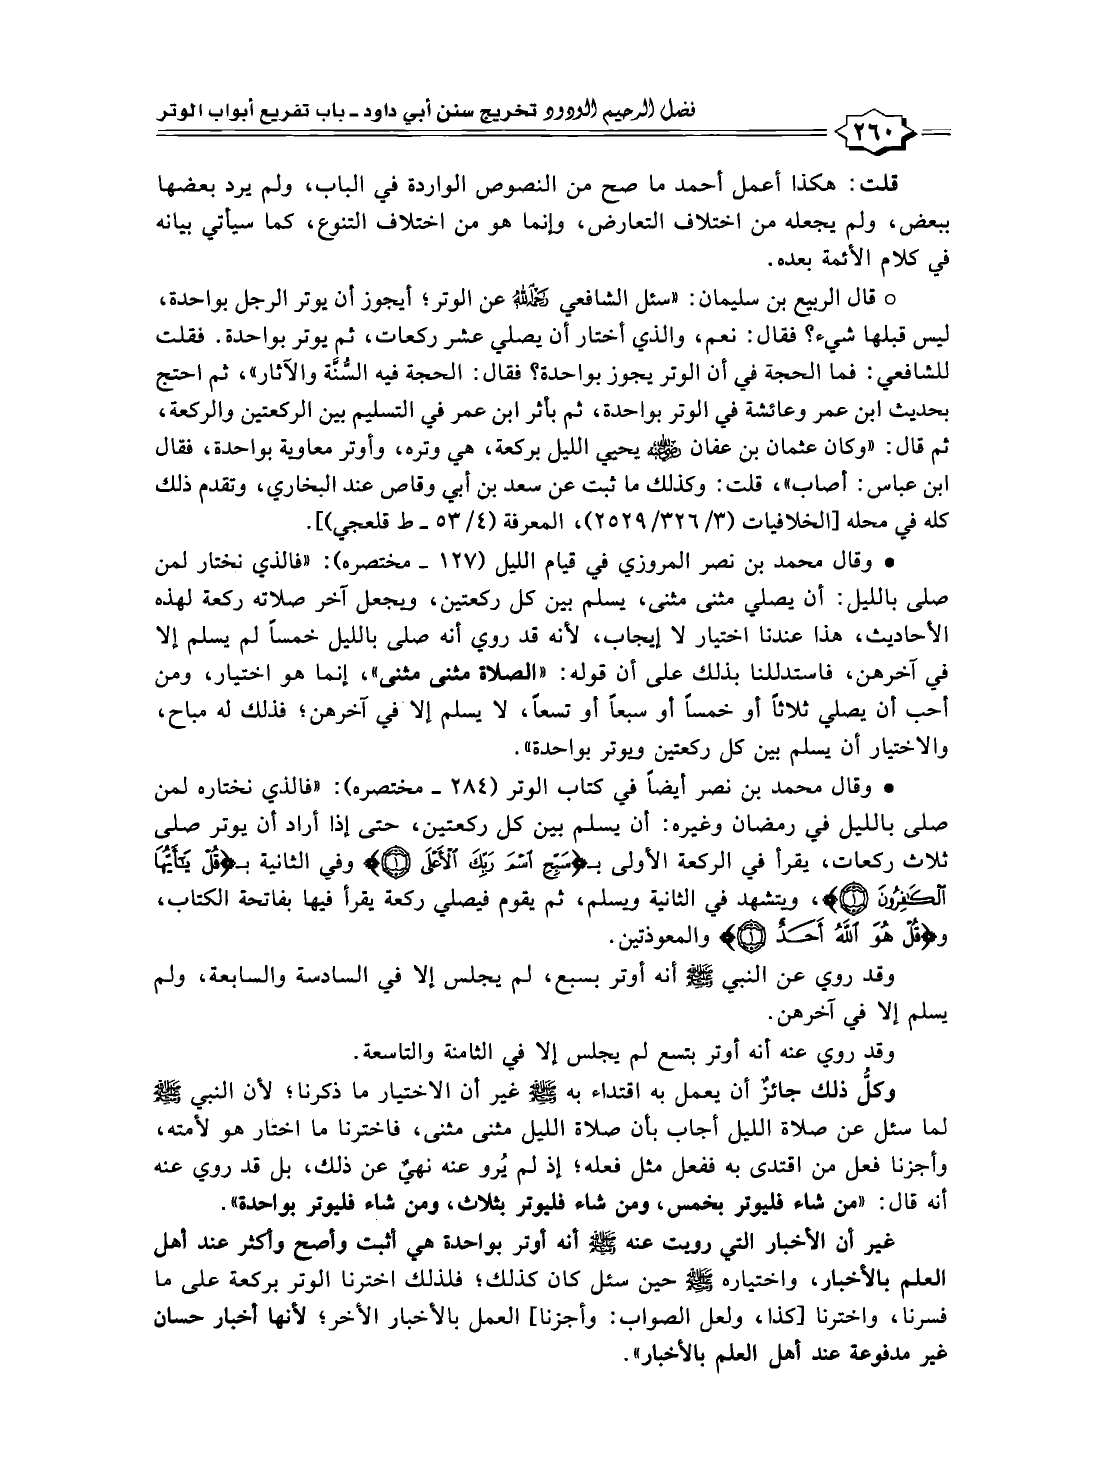 فضل الرحيم الودود تخريج سنن أبي داود - باب تفريع أبواب الوتر
٢٦٠
قلت: هكذا أعمل أحمد ما صح من النصوص الواردة في الباب، ولم يرد بعضها
ببعض، ولم يجعله من اختلاف التعارض، وإنما هو من اختلاف التنوع، كما سيأتي بيانه
في كلام الأئمة بعده.
○ قال الربيع بن سليمان: «سئل الشافعي رَحِمَهُ اللهُ عن الوتر؛ أيجوز أن يوتر الرجل بواحدة،
ليس قبلها شيء؟ فقال: نعم، والذي أختار أن يصلي عشر ركعات، ثم يوتر بواحدة. فقلت
للشافعي: فما الحجة في أن الوتر يجوز بواحدة؟ فقال: الحجة فيه السُّنَّة والآثار»، ثم احتج
بحديث ابن عمر وعائشة في الوتر بواحدة، ثم بأثر ابن عمر في التسليم بين الركعتين والركعة،
ثم قال: «وكان عثمان بن عفان رضي الله عنه يحيي الليل بركعة، هي وتره، وأوتر معاوية بواحدة، فقال
ابن عباس: أصاب»، قلت: وكذلك ما ثبت عن سعد بن أبي وقاص عند البخاري، وتقدم ذلك
كله في محله [الخلافيات (٣/ ٣٢٦/ ٢٥٢٩)، المعرفة (٤/ ٥٣ - ط قلعجي)].
• وقال محمد بن نصر المروزي في قيام الليل (١٢٧ - مختصره): «فالذي نختار لمن
صلى بالليل: أن يصلي مثنى مثنى، يسلم بين كل ركعتين، ويجعل آخر صلاته ركعة لهذه
الأحاديث، هذا عندنا اختيار لا إيجاب، لأنه قد روي أنه صلى بالليل خمساً لم يسلم إلا
في آخرهن، فاستدللنا بذلك على أن قوله: «الصلاة مثنى مثنى»، إنما هو اختيار، ومن
أحب أن يصلي ثلاثاً أو خمساً أو سبعاً أو تسعاً، لا يسلم إلا في آخرهن؛ فذلك له مباح،
والاختيار أن يسلم بين كل ركعتين ويوتر بواحدة».
• وقال محمد بن نصر أيضاً في كتاب الوتر (٢٨٤ - مختصره): «فالذي نختاره لمن
صلى بالليل في رمضان وغيره: أن يسلم بين كل ركعتين، حتى إذا أراد أن يوتر صلى
ثلاث ركعات، يقرأ في الركعة الأولى بـ﴿سَبِّحِ ٱسْمَ رَبِّكَ ٱلْأَعْلَى ۝١﴾ وفي الثانية بـ﴿قُلْ يَٰٓأَيُّهَا
ٱلْكَٰفِرُونَ ۝١﴾، ويتشهد في الثانية ويسلم، ثم يقوم فيصلي ركعة يقرأ فيها بفاتحة الكتاب،
و﴿قُلْ هُوَ ٱللَّهُ أَحَدٌ ۝١﴾ والمعوذتين.
وقد روي عن النبي ﷺ أنه أوتر بسبع، لم يجلس إلا في السادسة والسابعة، ولم
يسلم إلا في آخرهن.
وقد روي عنه أنه أوتر بتسع لم يجلس إلا في الثامنة والتاسعة.
وكلُّ ذلك جائزٌ أن يعمل به اقتداء به ﷺ غير أن الاختيار ما ذكرنا؛ لأن النبي ﷺ
لما سئل عن صلاة الليل أجاب بأن صلاة الليل مثنى مثنى، فاخترنا ما اختار هو لأمته،
وأجزنا فعل من اقتدى به ففعل مثل فعله؛ إذ لم يُرو عنه نهيٌ عن ذلك، بل قد روي عنه
أنه قال: «من شاء فليوتر بخمس، ومن شاء فليوتر بثلاث، ومن شاء فليوتر بواحدة».
غير أن الأخبار التي رويت عنه ﷺ أنه أوتر بواحدة هي أثبت وأصح وأكثر عند أهل
العلم بالأخبار، واختياره ﷺ حين سئل كان كذلك؛ فلذلك اخترنا الوتر بركعة على ما
فسرنا، واخترنا [كذا، ولعل الصواب: وأجزنا] العمل بالأخبار الأخر؛ لأنها أخبار حسان
غير مدفوعة عند أهل العلم بالأخبار».